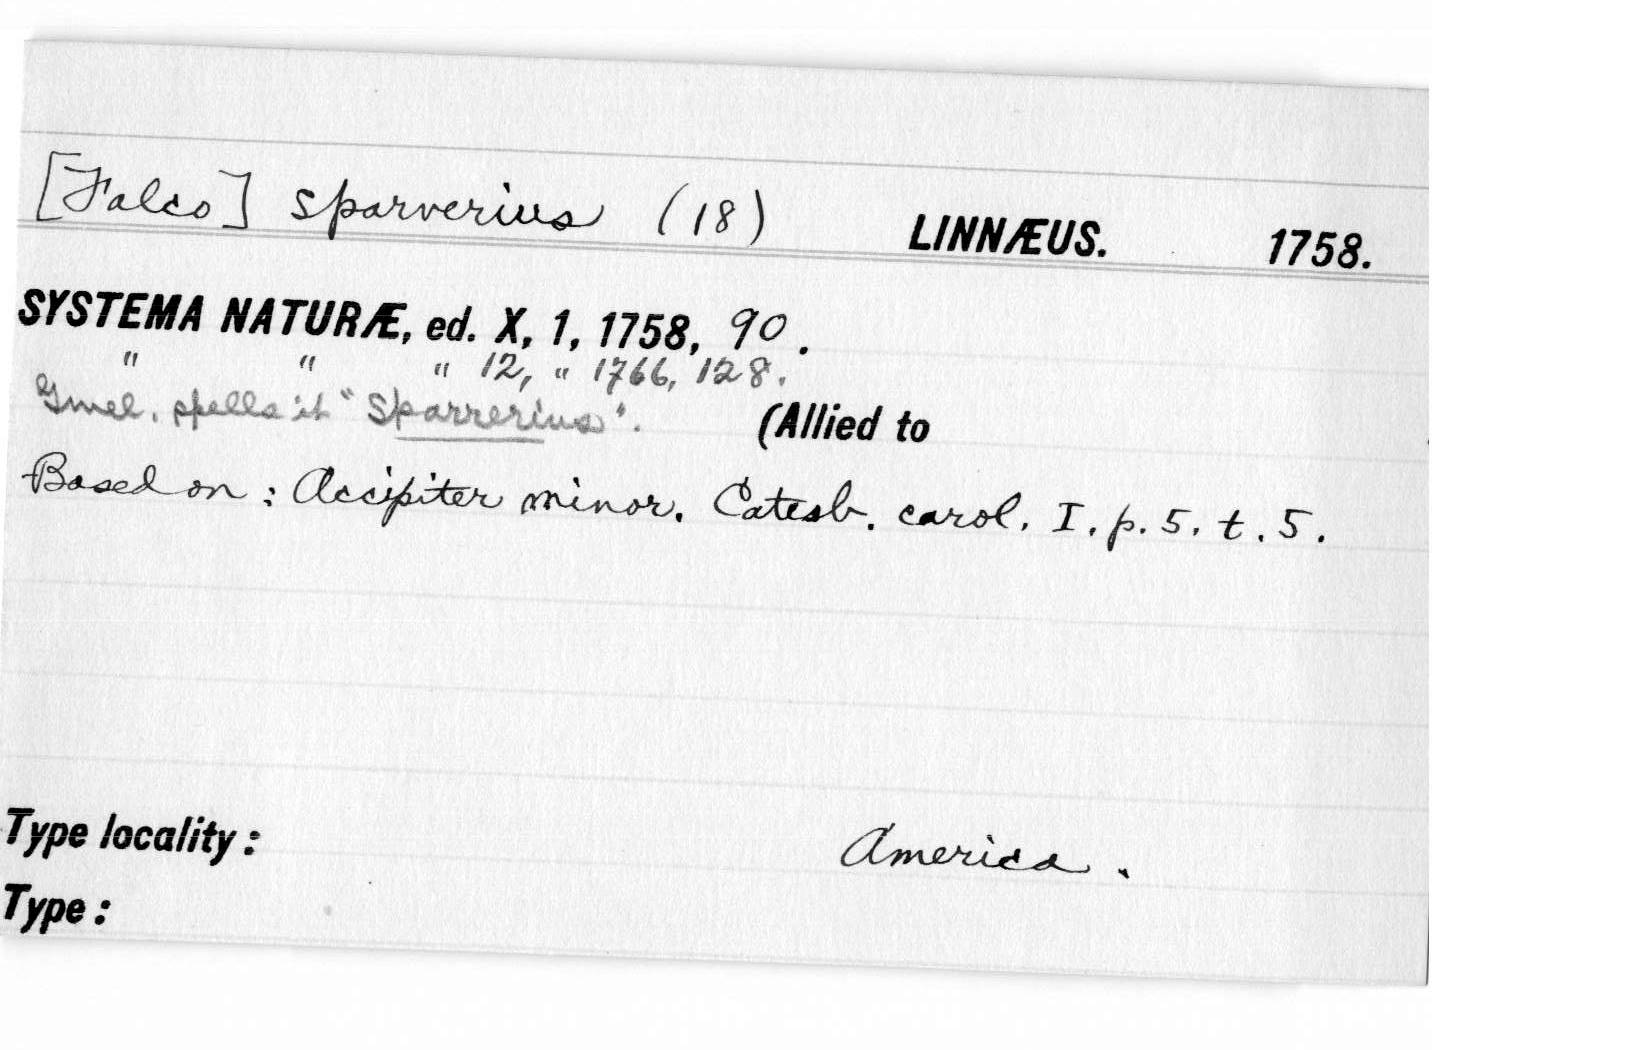 [Falco] sparverius (18) LINNÆUS. 1758.
SYSTEMA NATURÆ, ed. X, 1, 1758, 90.
" " " 12, " 1766, 128.
Gmel. spells it "Sparrerius".
(Allied to
Based on: Accipiter minor. Catesb. carol. I. p. 5. t. 5.
Type locality: America.
Type: